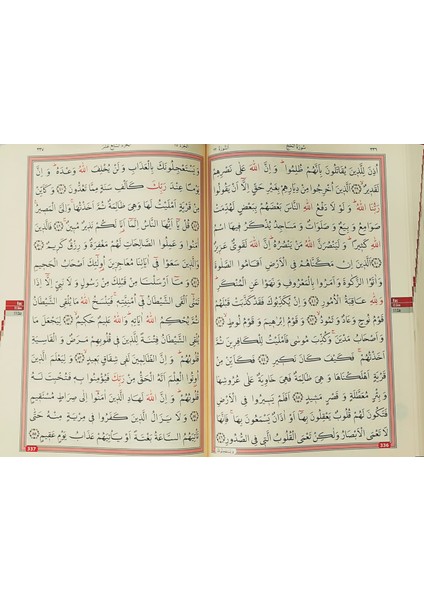 سُورَةُ الْحَجِّ
٣٣٦
اُذِنَ لِلَّذٖينَ يُقَاتَلُونَ بِاَنَّهُمْ ظُلِمُواۜ وَاِنَّ اللّٰهَ عَلٰى نَصْرِهِمْ
لَقَدٖيرٌۙ ﴿٣٩﴾ اَلَّذٖينَ اُخْرِجُوا مِنْ دِيَارِهِمْ بِغَيْرِ حَقٍّ اِلَّٓا اَنْ يَقُولُوا
رَبُّنَا اللّٰهُۜ وَلَوْلَا دَفْعُ اللّٰهِ النَّاسَ بَعْضَهُمْ بِبَعْضٍ لَهُدِّمَتْ
صَوَامِعُ وَبِيَعٌ وَصَلَوَاتٌ وَمَسَاجِدُ يُذْكَرُ فٖيهَا اسْمُ
اللّٰهِ كَثٖيرًاۜ وَلَيَنْصُرَنَّ اللّٰهُ مَنْ يَنْصُرُهُۜ اِنَّ اللّٰهَ لَقَوِيٌّ عَزٖيزٌ ﴿٤٠﴾
اَلَّذٖينَ اِنْ مَكَّنَّاهُمْ فِي الْاَرْضِ اَقَامُوا الصَّلٰوةَ
وَاٰتَوُا الزَّكٰوةَ وَاَمَرُوا بِالْمَعْرُوفِ وَنَهَوْا عَنِ الْمُنْكَرِۜ
وَلِلّٰهِ عَاقِبَةُ الْاُمُورِ ﴿٤١﴾ وَاِنْ يُكَذِّبُوكَ فَقَدْ كَذَّبَتْ قَبْلَهُمْ
قَوْمُ نُوحٍ وَعَادٌ وَثَمُودُۙ ﴿٤٢﴾ وَقَوْمُ اِبْرٰهٖيمَ وَقَوْمُ لُوطٍۙ ﴿٤٣﴾
وَاَصْحَابُ مَدْيَنَۚ وَكُذِّبَ مُوسٰى فَاَمْلَيْتُ لِلْكَافِرٖينَ ثُمَّ
اَخَذْتُهُمْۚ فَكَيْفَ كَانَ نَكٖيرِ ﴿٤٤﴾ فَكَاَيِّنْ مِنْ
قَرْيَةٍ اَهْلَكْنَاهَا وَهِيَ ظَالِمَةٌ فَهِيَ خَاوِيَةٌ عَلٰى عُرُوشِهَا
وَبِئْرٍ مُعَطَّلَةٍ وَقَصْرٍ مَشٖيدٍ ﴿٤٥﴾ اَفَلَمْ يَسٖيرُوا فِي الْاَرْضِ
فَتَكُونَ لَهُمْ قُلُوبٌ يَعْقِلُونَ بِهَٓا اَوْ اٰذَانٌ يَسْمَعُونَ بِهَاۚ فَاِنَّهَا
لَا تَعْمَى الْاَبْصَارُ وَلٰكِنْ تَعْمَى الْقُلُوبُ الَّتٖي فِي الصُّدُورِ ﴿٤٦﴾
336
٣٣٧
وَيَسْتَعْجِلُونَكَ بِالْعَذَابِ وَلَنْ يُخْلِفَ اللّٰهُ وَعْدَهُۜ وَاِنَّ
يَوْمًا عِنْدَ رَبِّكَ كَاَلْفِ سَنَةٍ مِمَّا تَعُدُّونَ ﴿٤٧﴾ وَكَاَيِّنْ
مِنْ قَرْيَةٍ اَمْلَيْتُ لَهَا وَهِيَ ظَالِمَةٌ ثُمَّ اَخَذْتُهَاۚ وَاِلَيَّ الْمَصٖيرُ۟ ﴿٤٨﴾
قُلْ يَٓا اَيُّهَا النَّاسُ اِنَّمَٓا اَنَا۬ لَكُمْ نَذٖيرٌ مُبٖينٌۚ ﴿٤٩﴾ فَالَّذٖينَ
اٰمَنُوا وَعَمِلُوا الصَّالِحَاتِ لَهُمْ مَغْفِرَةٌ وَرِزْقٌ كَرٖيمٌ ﴿٥٠﴾
وَالَّذٖينَ سَعَوْا فٖٓي اٰيَاتِنَا مُعَاجِزٖينَ اُو۬لٰٓئِكَ اَصْحَابُ الْجَحٖيمِ
﴿٥١﴾ وَمَٓا اَرْسَلْنَا مِنْ قَبْلِكَ مِنْ رَسُولٍ وَلَا نَبِيٍّ اِلَّٓا اِذَا
تَمَنّٰىٓ اَلْقَى الشَّيْطَانُ فٖٓي اُمْنِيَّتِهٖۚ فَيَنْسَخُ اللّٰهُ مَا يُلْقِي الشَّيْطَانُ
ثُمَّ يُحْكِمُ اللّٰهُ اٰيَاتِهٖۜ وَاللّٰهُ عَلٖيمٌ حَكٖيمٌۙ ﴿٥٢﴾ لِيَجْعَلَ مَا
يُلْقِي الشَّيْطَانُ فِتْنَةً لِلَّذٖينَ فٖي قُلُوبِهِمْ مَرَضٌ وَالْقَاسِيَةِ
قُلُوبُهُمْۜ وَاِنَّ الظَّالِمٖينَ لَفٖي شِقَاقٍ بَعٖيدٍۙ ﴿٥٣﴾ وَلِيَعْلَمَ الَّذٖينَ
اُو۫تُوا الْعِلْمَ اَنَّهُ الْحَقُّ مِنْ رَبِّكَ فَيُؤْمِنُوا بِهٖ فَتُخْبِتَ لَهُ
قُلُوبُهُمْۜ وَاِنَّ اللّٰهَ لَهَادِ الَّذٖينَ اٰمَنُٓوا اِلٰى صِرَاطٍ مُسْتَقٖيمٍ
﴿٥٤﴾ وَلَا يَزَالُ الَّذٖينَ كَفَرُوا فٖي مِرْيَةٍ مِنْهُ حَتّٰى
تَأْتِيَهُمُ السَّاعَةُ بَغْتَةً اَوْ يَأْتِيَهُمْ عَذَابُ يَوْمٍ عَقٖيمٍ ﴿٥٥﴾
337